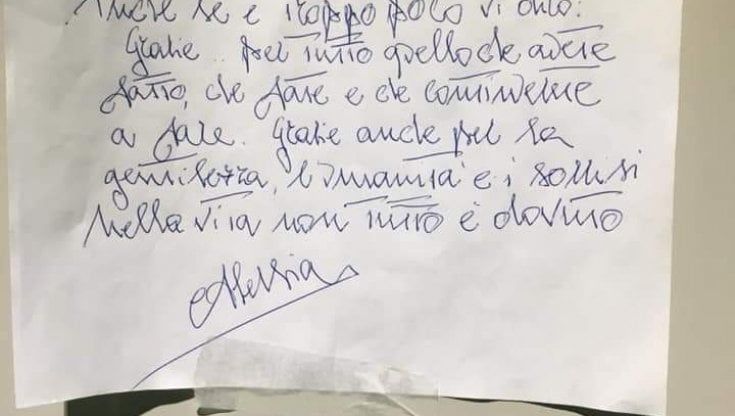 Anche se è troppo poco vi dico:
Grazie.. per tutto quello che avete
fatto, che fate e che continuerete
a fare. Grazie anche per la
gentilezza, l'umanità e i sorrisi
nella vita non tutto è dovuto
Alessia